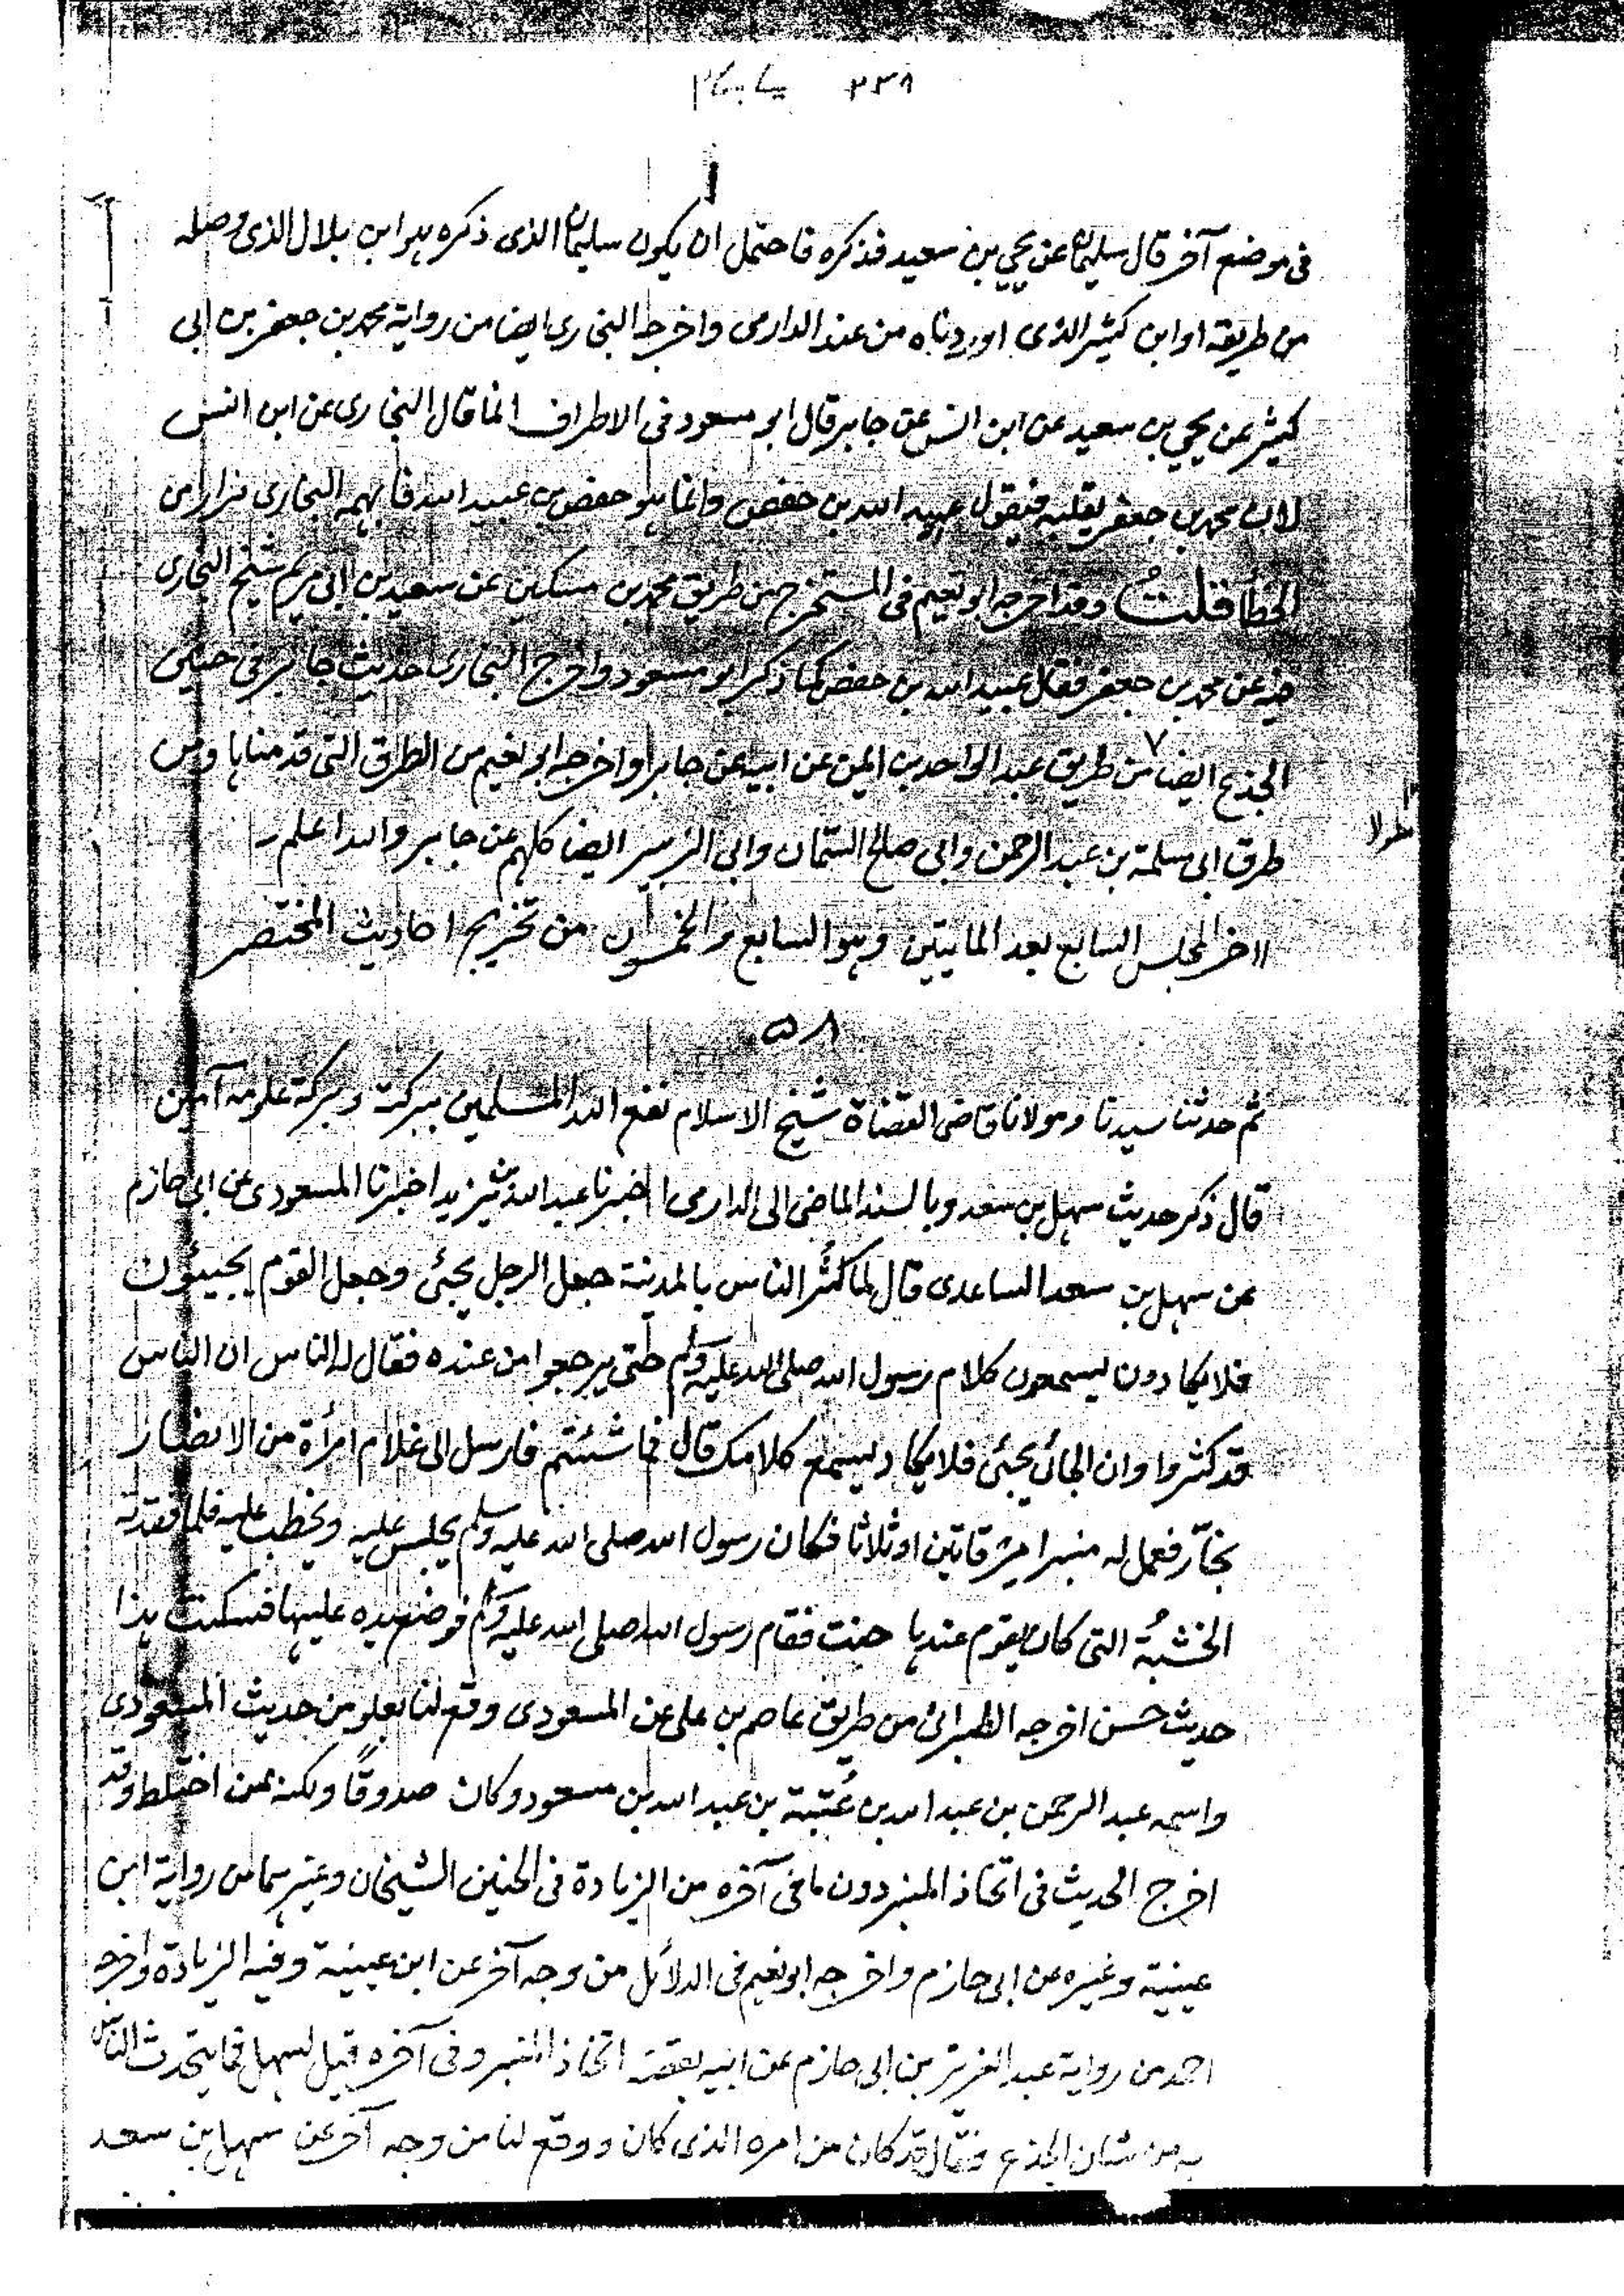 ٢٣٨
في موضع آخر قال سليمان عن يحيي بن سعيد فذكره فاحتمل ان يكون سليمان الذى ذكره هو ابن بلال الذى وصله
من طريقه او ابن كثير الذى اوردناه من عند الدارمى واخرجه البخارى ايضا من رواية محمد بن جعفر بن ابى
كيثر عن يحيي بن سعيد عن ابن انس عن جابر قال ابو مسعود فى الاطراف انما قال البخارى عن ابن انس
لان محمد بن جعفر يقلبه فيقول عبيد الله بن حفص وانما هو حفص بن عبيد الله فابهمه البخارى فرارا من
الخطأ قلتُ وقد اخرجه ابو نعيم فى المستخرج من طريق محمد بن مسكين عن سعيد بن ابى مريم شيخ البخارى
فيه عن محمد بن جعفر فقال عبيد الله بن حفص كما ذكر ابو مسعود واخرج البخارى حديث جابر فى حنين
الجذع ايضا من طريق عبد الواحد بن ايمن عن ابيه عن جابر واخرجه ابو نعيم من الطرق التى قدمناها ومن
طولا
طرق ابى سلمة بن عبد الرحمن وابى صالح السمّان وابى الزبير ايضا كلهم عن جابر والله اعلم
اخر المجلس السابع بعد المايتين وهو السابع والخمسون من تخريج احاديث المختصر
٥٨
ثم حدثنا سيدنا ومولانا قاضى القضاة شيخ الاسلام نفع الله المسلمين ببركته وبركة علومه آمين
قال ذكر حديث سهل بن سعد وبالسند الماضى الى الدارمى اخبرنا عبد الله بن يزيد اخبرنا المسعودى عن ابى حازم
عن سهل بن سعد الساعدى قال لما كثُر الناس بالمدينة جعل الرجل يجئى وجعل القوم يجيئون
فلا يكادون يسمعون كلام رسول الله صلى الله عليه وسلم حتى يرجعوا من عنده فقال له الناس ان الناس
قد كثروا وان الجائى يجئى فلا يكاد يسمع كلامك قال فما شئتم فارسل الى غلام امرأة من الانصار
نجّار فعمل له منبرا مرقاتين او ثلاثا فكان رسول الله صلى الله عليه وسلم يجلس عليه ويخطب عليه فلما فقدته
الخشبةُ التى كان يقوم عندها حنت فقام رسول الله صلى الله عليه وسلم فوضع يده عليها فسكنت هذا
حديث حسن اخرجه الطبرانى من طريق عاصم بن على عن المسعودى وقع لنا بعلو من حديث المسعودى
واسمه عبد الرحمن بن عبد الله بن عُتبة بن عبد الله بن مسعود وكان صدوقًا ولكنه ممن اختلط وقد
اخرج الحديث فى اتخاذ المنبر دون ما فى آخره من الزيادة فى الحنين الشيخان وغيرهما من رواية ابن
عيينة وغيره عن ابى حازم واخرجه ابو نعيم فى الدلائل من وجه آخر عن ابن عيينة وفيه الزيادة واخرجه
احمد من رواية عبد العزيز بن ابى حازم عن ابيه بقصة اتخاذ المنبر وفى آخره قيل لسهل فما يتحدث الناس
به من شان الجذع فقال قد كان من امره الذى كان ووقع لنا من وجه آخر عن سهل بن سعد